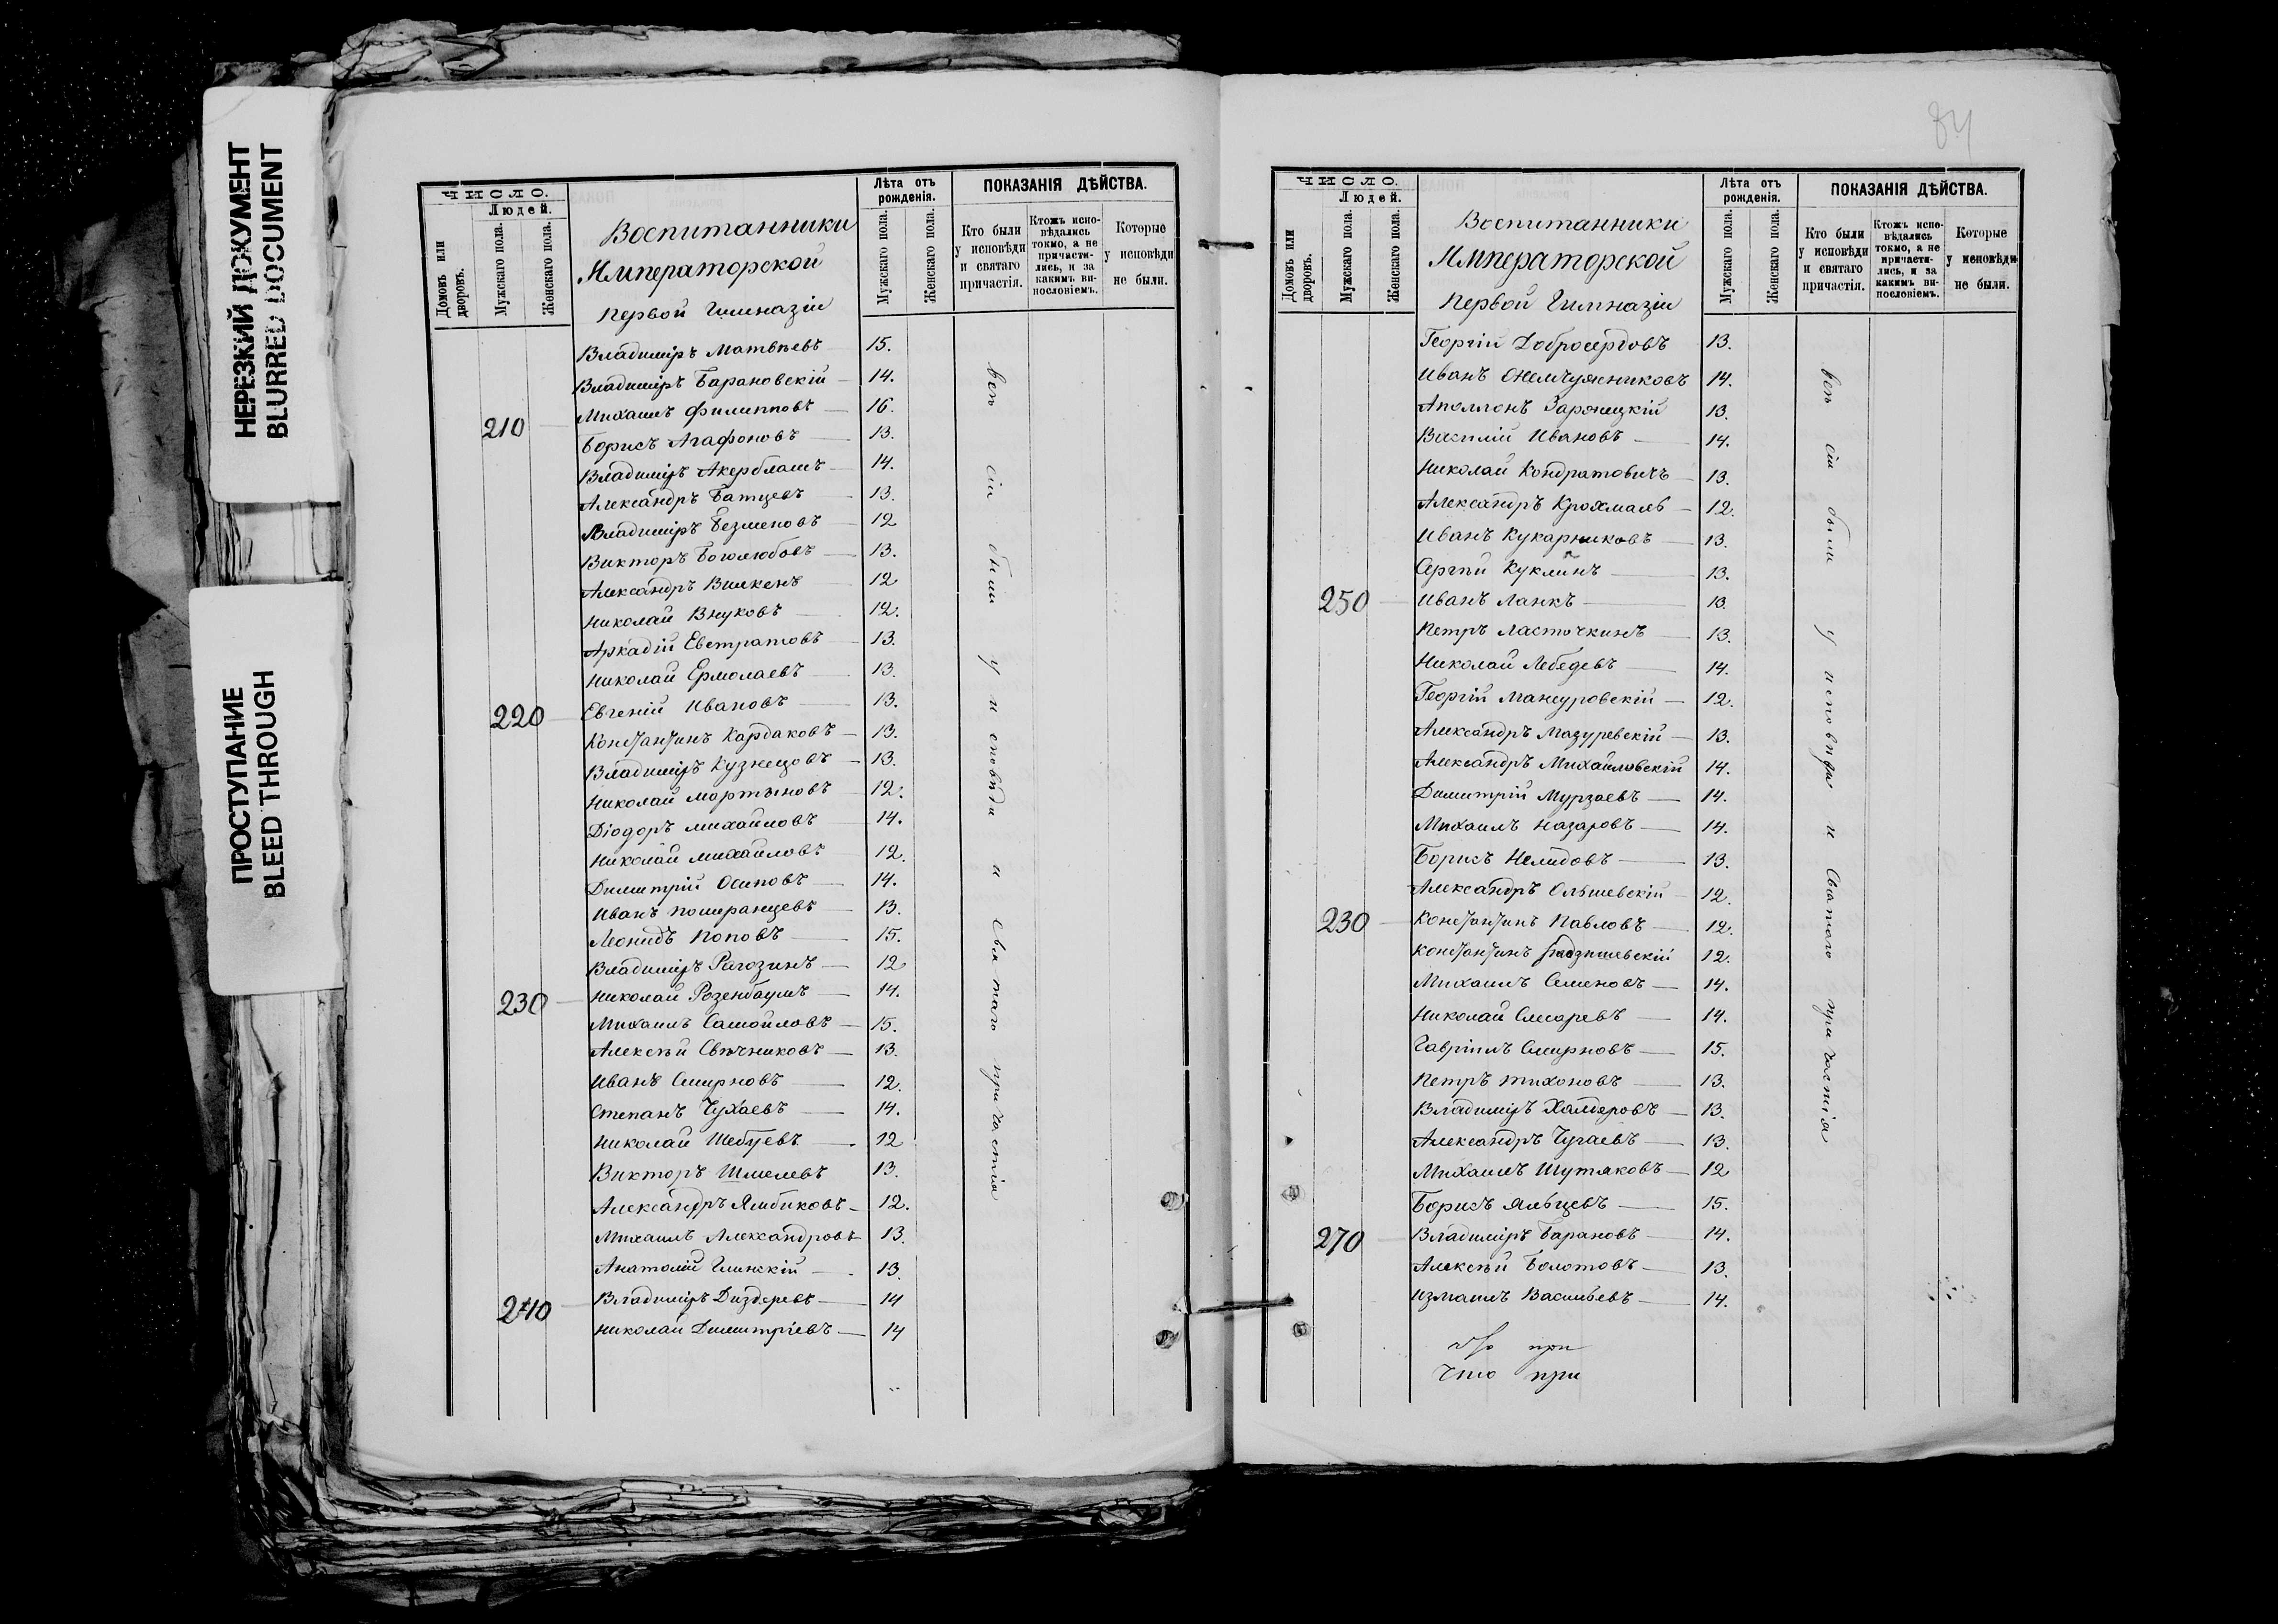 НЕРЕЗКИЙ ДОКУМЕНТ
BLURRED DOCUMENT
ПРОСТУПАНИЕ
BLEED THROUGH
ЧИСЛО.
Людей.
Домовъ или дворовъ.
Мужскаго пола.
Женскаго пола.
Воспитанники
Императорской
первой гимназіи
Лѣта отъ рожденія.
Мужскаго пола.
Женскаго пола.
ПОКАЗАНІЯ ДѢЙСТВА.
Кто были у исповѣди и святаго причастія.
Ктожъ испо-вѣдались токмо, а не причасти-лись, и за какимъ ви-нословіемъ.
Которые у исповѣди не были.
Владиміръ Матвѣевъ 15.
Владиміръ Барановскій — 14.
Михаилъ Филипповъ — 16.
210 Борисъ Агафоновъ — 13.
Владиміръ Акерблатъ — 14.
Александръ Батцевъ — 13.
Владиміръ Безменовъ — 12
Викторъ Боголюбовъ — 13.
Александръ Вилкенъ — 12
Николай Внуковъ — 12.
Аркадій Евстратовъ — 13.
Николай Ермолаевъ — 13.
220 Евгеній Ивановъ — 13.
Константинъ Кардаковъ — 13.
Владиміръ Кузнецовъ — 13.
Николай Мартыновъ — 12.
Діодоръ Михайловъ — 14.
Николай Михайловъ 12.
Димитрій Осиповъ — 14.
Иванъ Померанцевъ — 13.
Леонидъ Поповъ — 15.
Владиміръ Рагозинъ — 12
230 Николай Розенбаумъ — 14.
Михаилъ Самойловъ — 15.
Алексѣй Свѣчниковъ — 13.
Иванъ Смирновъ — 12.
Степанъ Чухаевъ — 14.
Николай Шебуевъ — 12
Викторъ Шмелевъ 13.
Александръ Ямбиковъ — 12.
Михаилъ Александровъ 13.
Анатолій Глинскій — 13.
240 Владиміръ Диздеревъ — 14
Николай Димитріевъ — 14
всѣ сіи были у исповѣди и Святаго причастія
84
ЧИСЛО.
Людей.
Домовъ или дворовъ.
Мужскаго пола.
Женскаго пола.
Воспитанники
Императорской
первой Гимназіи
Лѣта отъ рожденія.
Мужскаго пола.
Женскаго пола.
ПОКАЗАНІЯ ДѢЙСТВА.
Кто были у исповѣди и святаго причастія.
Ктожъ испо-вѣдались токмо, а не причасти-лись, и за какимъ ви-нословіемъ.
Которые у исповѣди не были.
Георгій Добросердовъ 13.
Иванъ Жемчужниковъ 14.
Аполлонъ Заронецкій 13.
Василій Ивановъ — 14.
Николай Кондратовичъ 13.
Александръ Крохмаль — 12.
Иванъ Кукарниковъ — 13.
Сергѣй Куклинъ — 13.
250 Иванъ Ланкъ — 13.
Петръ Ласточкинъ — 13.
Николай Лебедевъ — 14.
Георгій Мансуровскій — 12.
Александръ Мазуревскій — 13.
Александръ Михайловскій 14.
Димитрій Мурзаевъ — 14.
Михаилъ Назаровъ — 14.
Борисъ Нелидовъ — 13.
Александръ Ольшевскій — 12.
230 Константинъ Павловъ — 12.
Константинъ 12.
Михаилъ Семеновъ — 14.
Николай Слесаревъ — 14.
Гавріилъ Смирновъ — 15.
Петръ Тихоновъ — 13.
Владиміръ Халдеровъ — 13.
Александръ Чугаевъ — 13.
Михаилъ Шутяковъ — 12
Борисъ Яльцевъ — 15.
270 Владиміръ Барановъ — 14.
Алексѣй Болотовъ — 13.
Измаилъ Васильевъ — 14.
при
Что при
всѣ сіи были у исповѣди и Святаго причастія